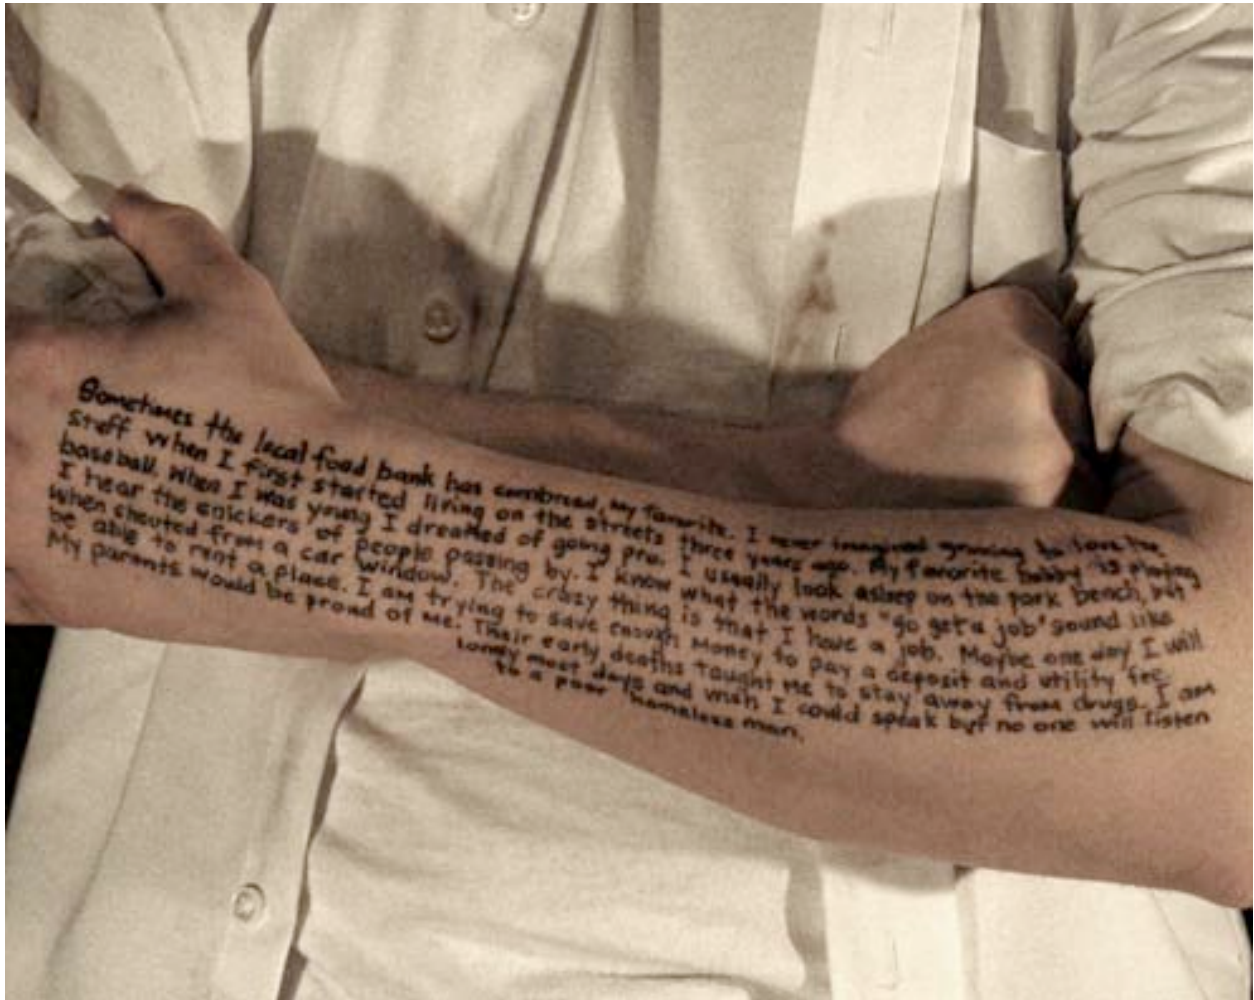 Sometimes the local food bank has cornbread, my favorite. I never imagined growing to love the
stuff when I first started living on the streets three years ago. My favorite hobby is playing
baseball. When I was young I dreamed of going pro. I usually look asleep on the park bench, but
I hear the snickers of people passing by. I know what the words "go get a job" sound like
when shouted from a car window. The crazy thing is that I have a job. Maybe one day I will
be able to rent a place. I am trying to save enough money to pay a deposit and utility fee.
My parents would be proud of me. Their early deaths taught me to stay away from drugs. I am
lonely most days and wish I could speak but no one will listen
to a poor homeless man.